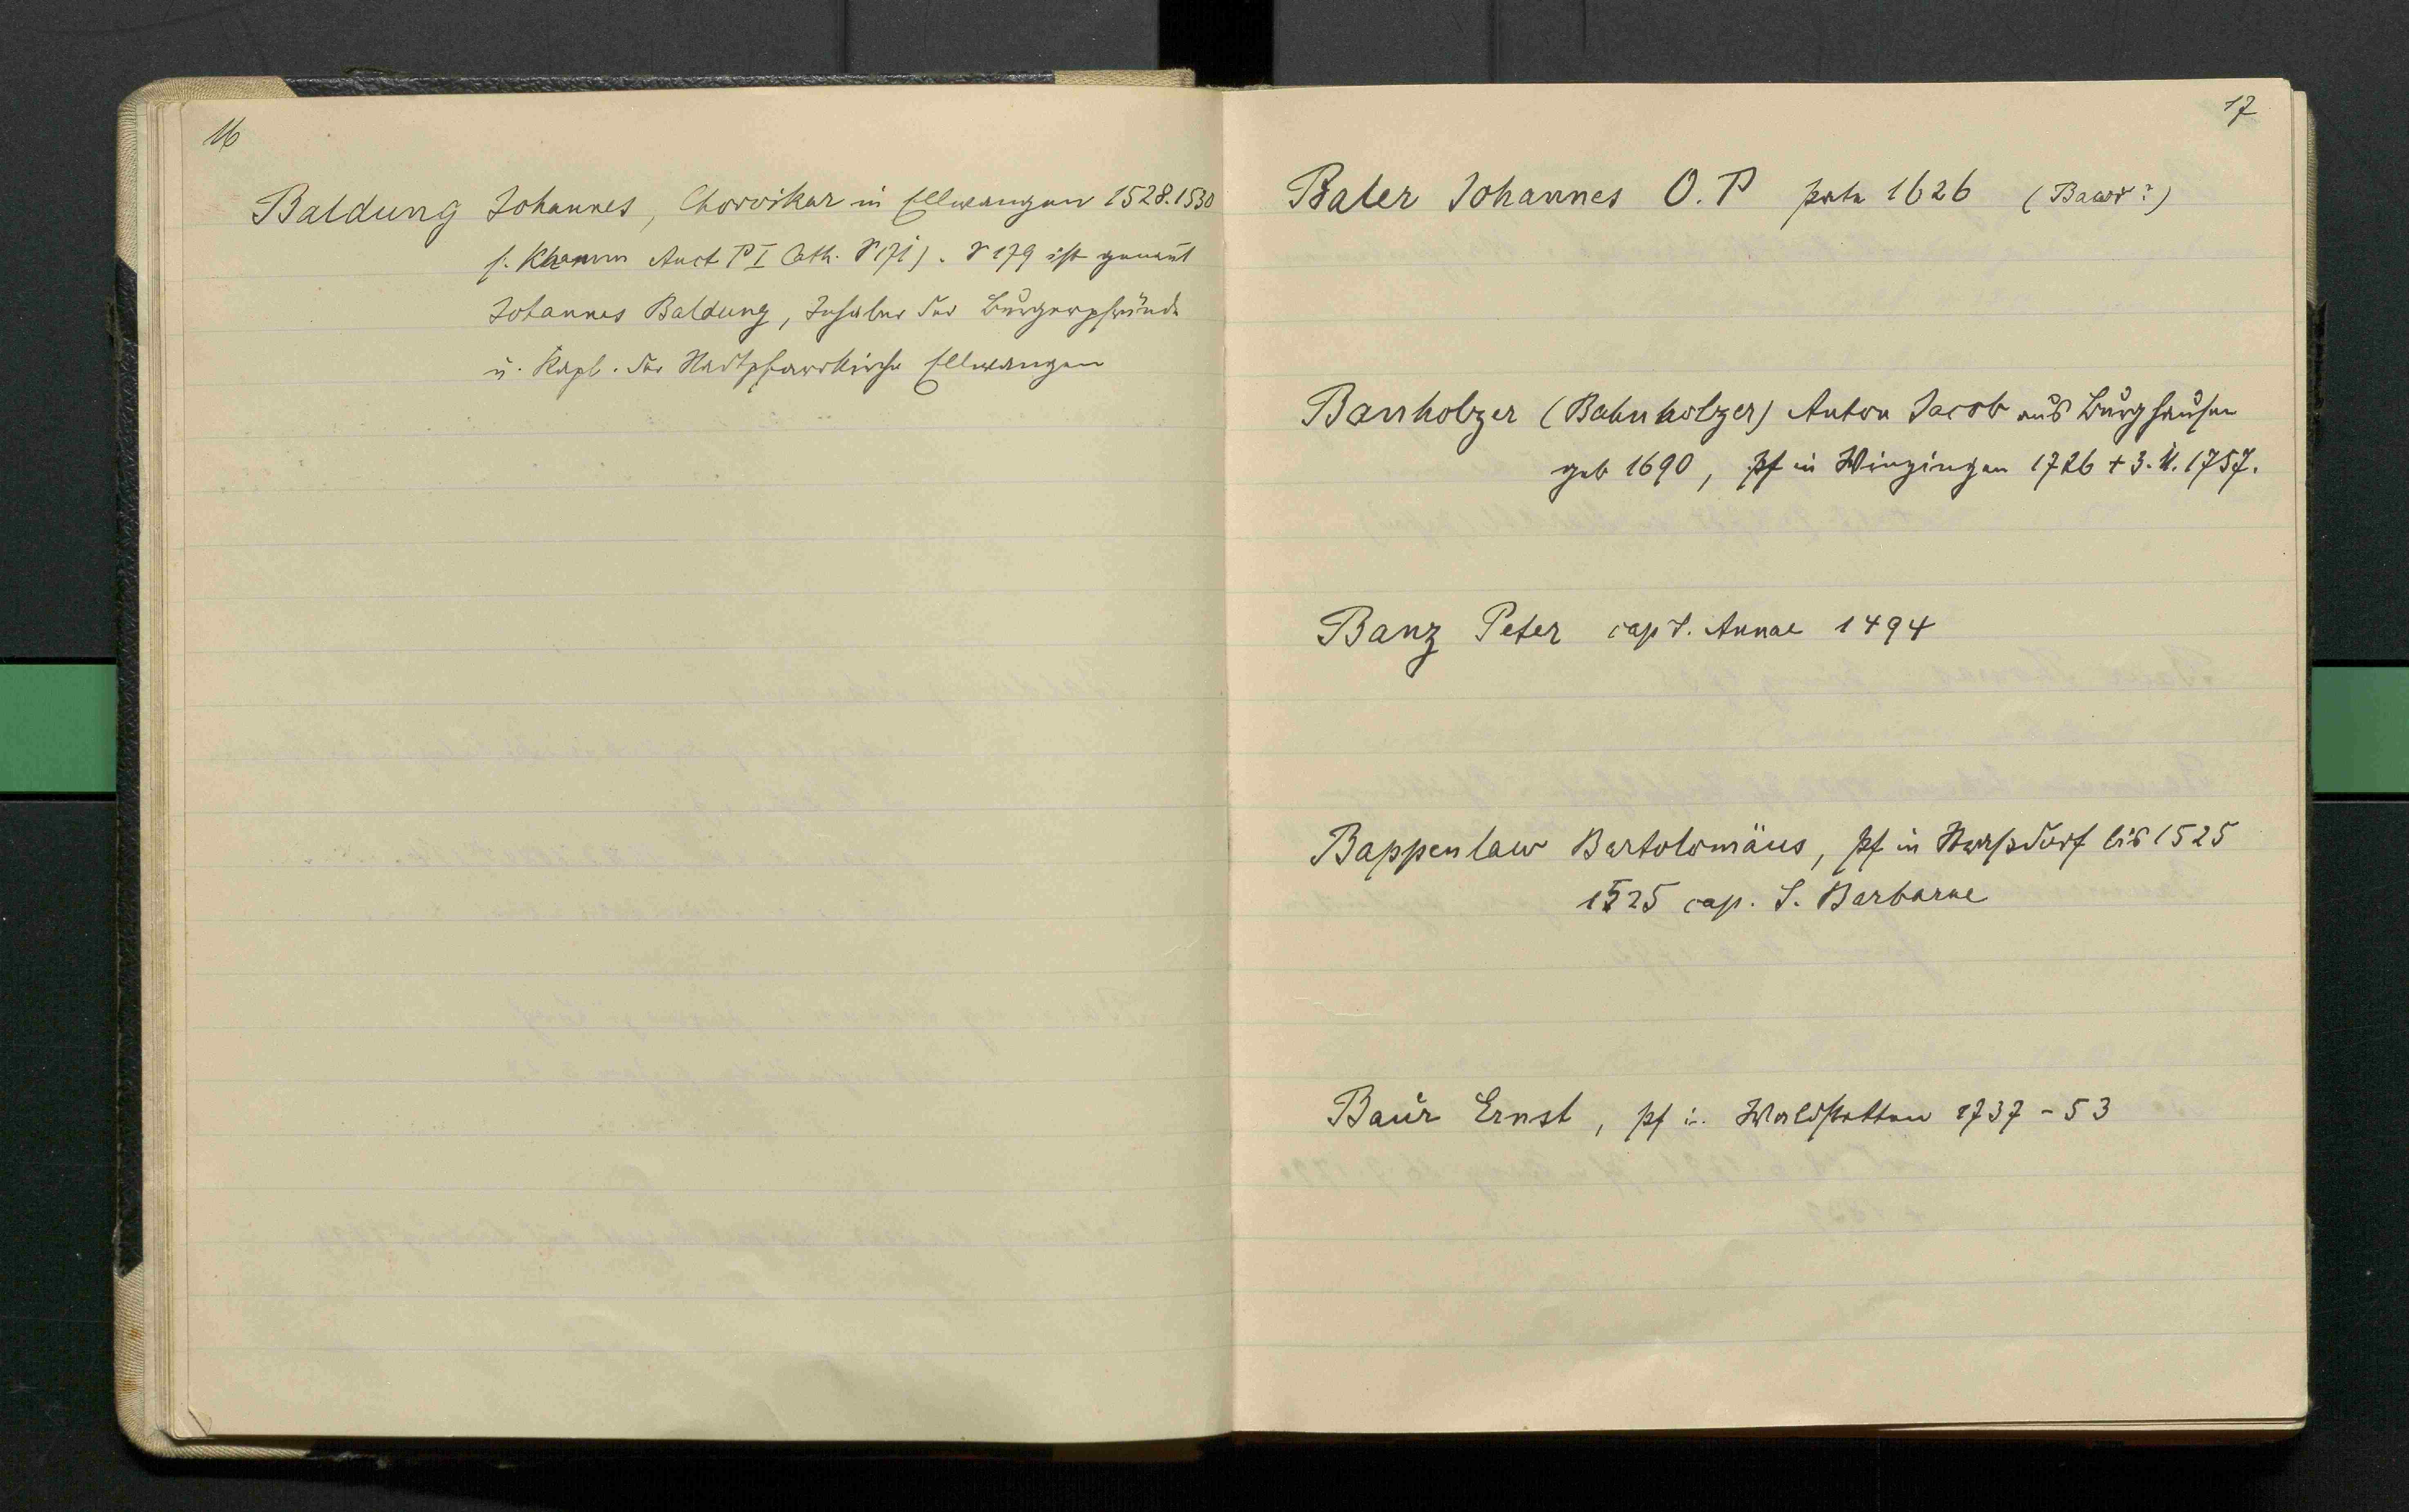 16
Baldung Johannes, Chorvikar in Ellwangen 1528. 1530
s. Khamm Auct P I Cath. S 171). S 179 ist genant
Johannes Baldung, Inhaber der Bürgerpfründe
u. Kapl. der Stadtpfarrkirche Ellwangen
17
Baler Johannes O. P 1626 (Bawr?)
Banholzer (Bahnholzer) Anton Jacob aus Burghausen
geb 1690, Pf in Winzingen 1726 + 3. 1757.
Banz Peter cap S. Annae 1494
Bappenlaw Bartolomäus, Pf in bis 1525
1525 cap. S. Barbarae
Baur Ernst, Pf in Waldstetten 1737 - 53